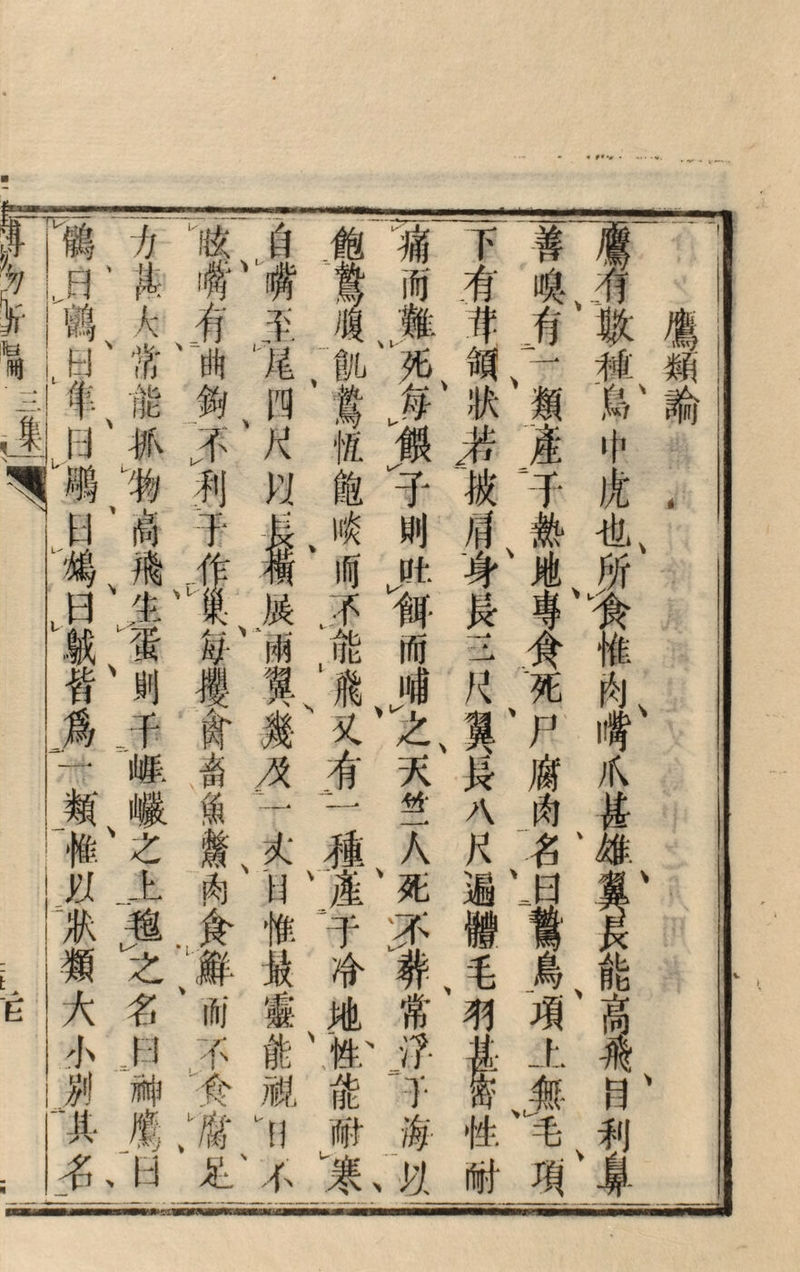 鷹類論
鷹有數種鳥中虎也所食惟肉嘴爪甚雄翼長能高飛目利鼻
善嗅有一類產于熱地專食死尸腐肉名曰鷙鳥項上無毛項
下有茸領狀若披肩身長三尺翼長八尺遍體毛羽甚密性耐
痛而難死每餵子則吐餌而哺之天竺人死不葬常浮于海以
飽鷙腹飢鷙恆飽啖而不能飛又有一種產于冷地性能耐寒
自嘴至尾四尺以長橫展兩翼幾及一丈目惟最靈能視日不
眩嘴有曲鉤不利于作巢每攫禽畜魚鱉肉食鮮而不食腐足
力甚大常能抓物高飛生蛋則于崕巗之上㲒之名曰神鷹曰
鶻曰鸇曰隼曰鵰曰鴆曰䳁皆爲一類惟以狀類大小別其名
博物新編 三集